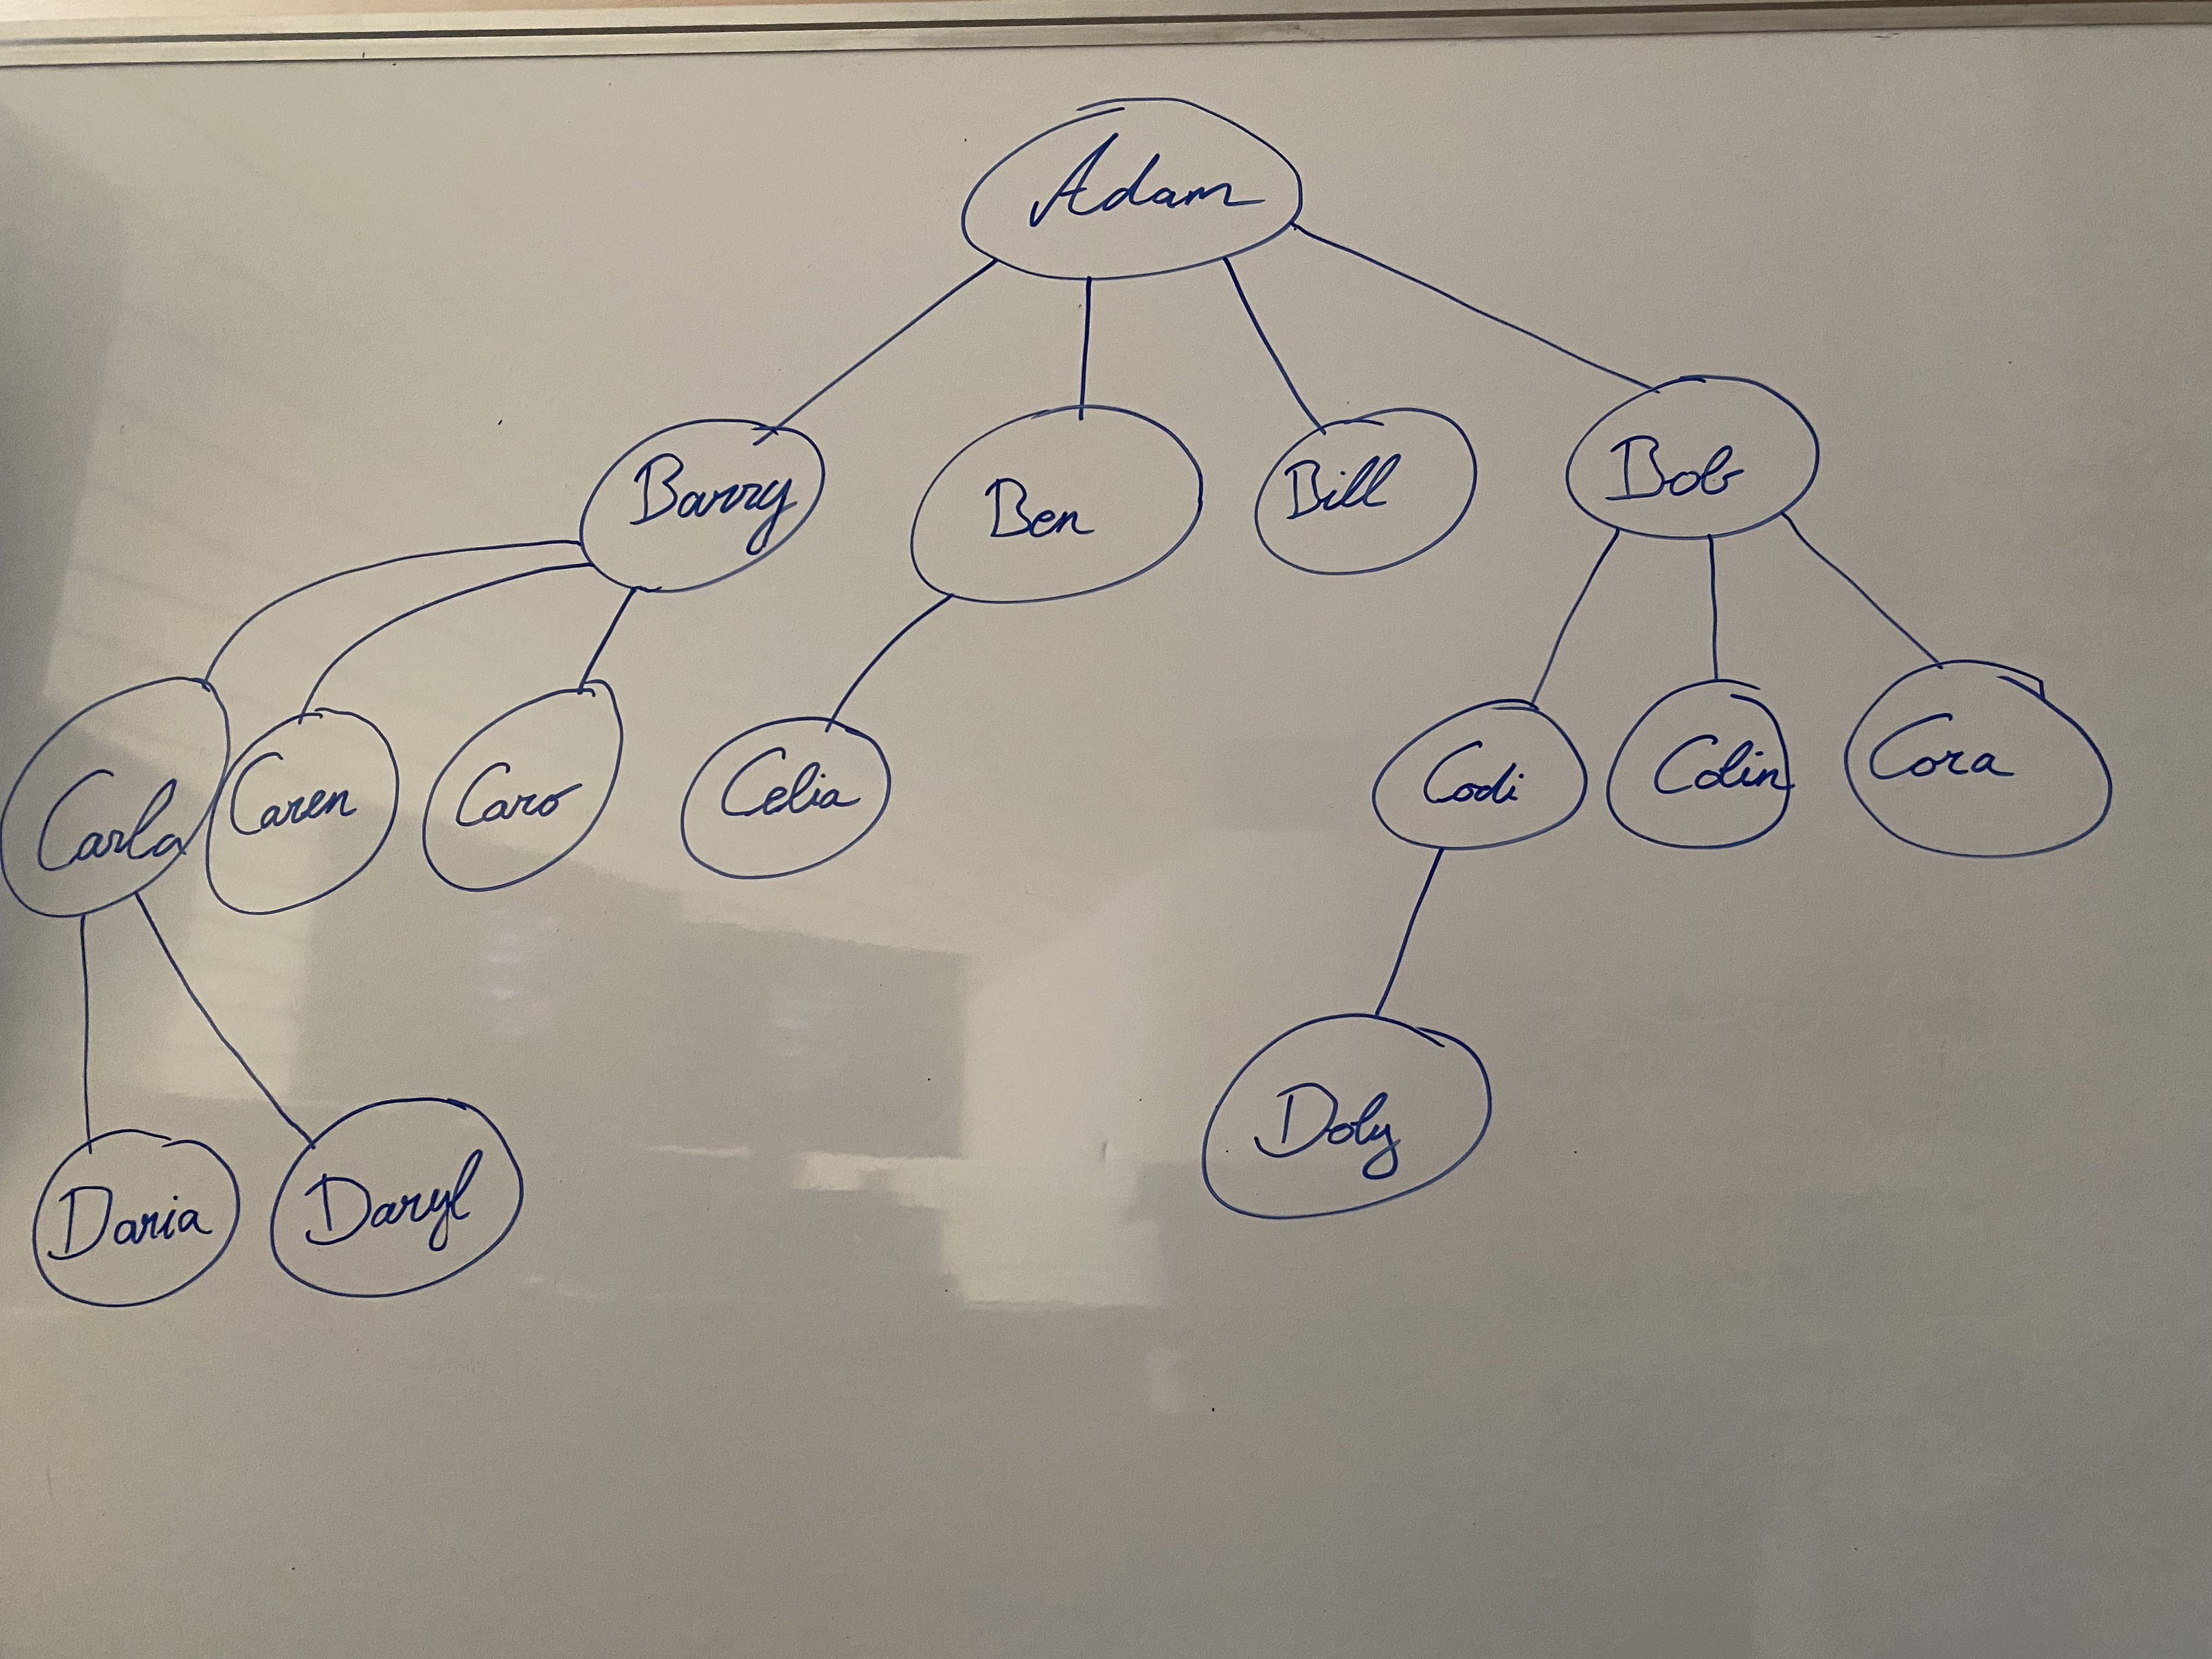 Adam
Barry
Ben
Bill
Bob
Carla
Caren
Caro
Celia
Codi
Colin
Cora
Daria
Daryl
Doly